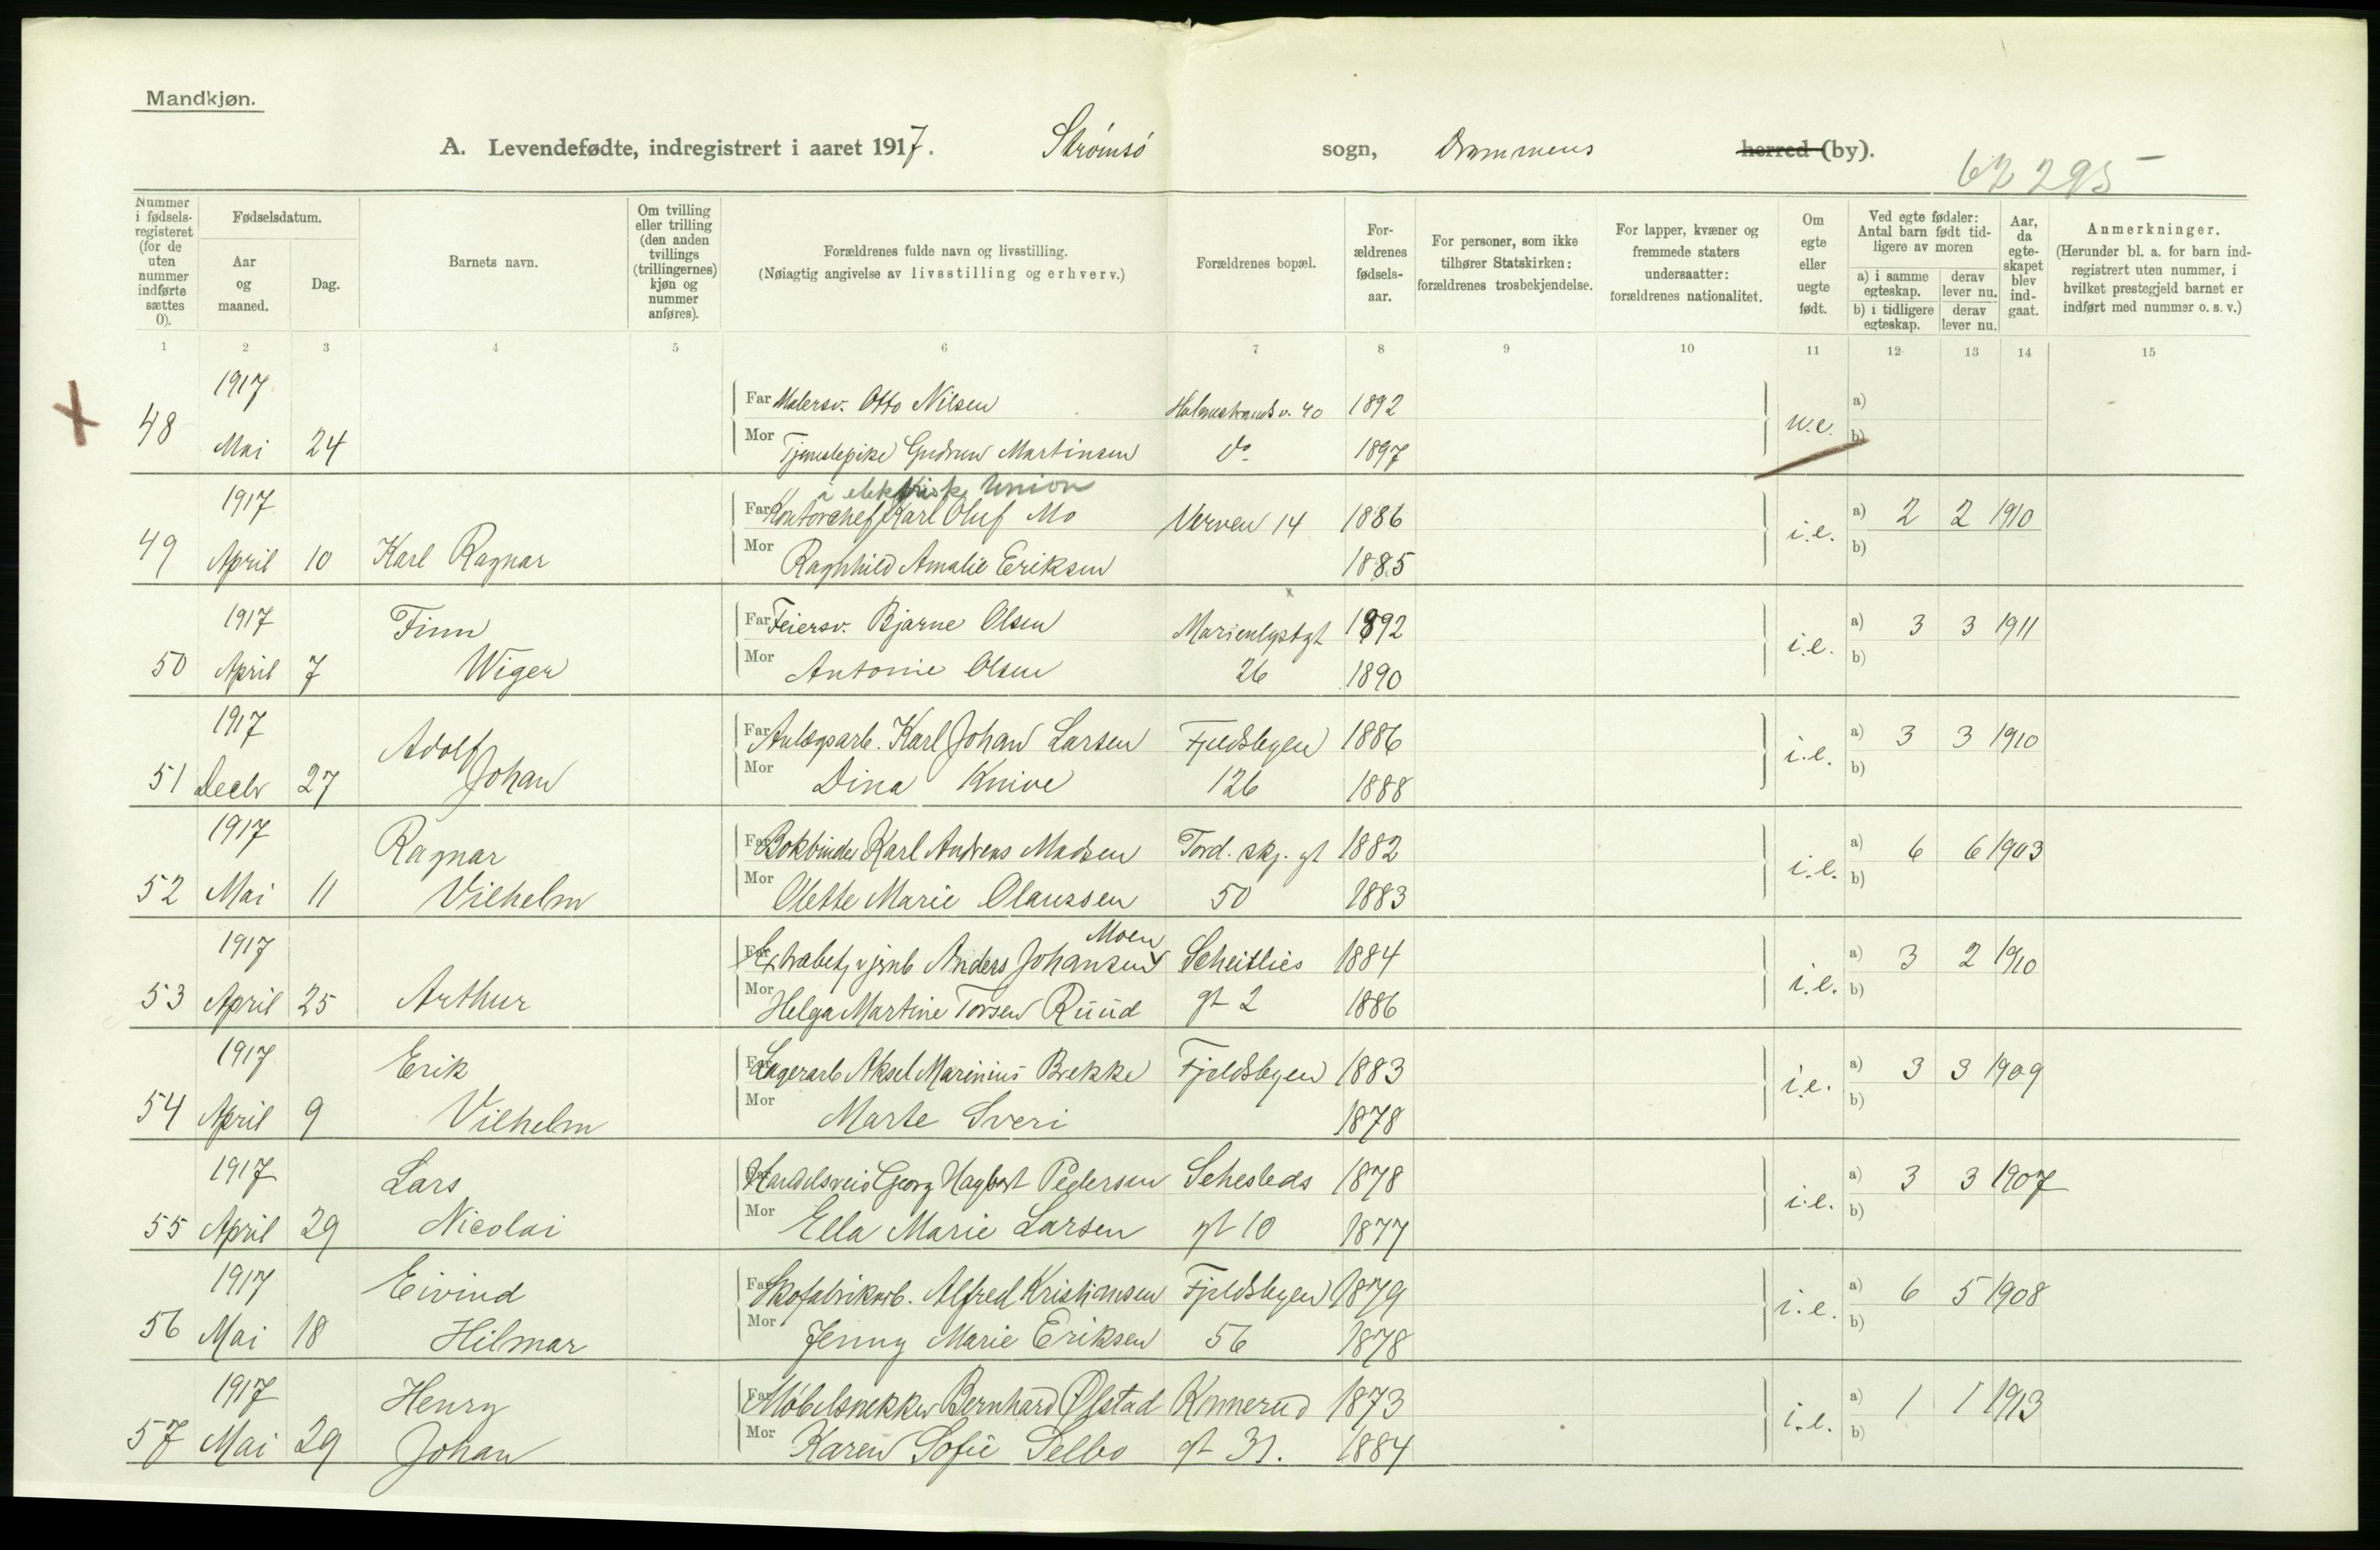 Mandkjøn.
A. Levendefødte, indregistrert i aaret 1917. Strømsø sogn, Drammens herred (by).
62 295
Nummer i fødsels-registeret (for de uten nummer indførte sættes 0).
Fødselsdatum.
Aar og maaned.
Dag.
Barnets navn.
Om tvilling eller trilling (den anden tvillings (trillingernes) kjøn og nummer anføres).
Forældrenes fulde navn og livsstilling.
(Nøiagtig angivelse av livsstilling og erhverv.)
Forældrenes bopæl.
For-ældrenes fødsels-aar.
For personer, som ikke tilhører Statskirken: forældrenes trosbekjendelse.
For lapper, kvæner og fremmede staters undersaatter: forældrenes nationalitet.
Om egte eller uegte født.
Ved egte fødsler: Antal barn født tid-ligere av moren
a) i samme egteskap. derav lever nu.
b) i tidligere egteskap. derav lever nu.
Aar, da egte-skapet blev ind-gaat.
Anmerkninger.
(Herunder bl. a. for barn ind-registrert uten nummer, i hvilket prestegjeld barnet er indført med nummer o. s. v.)
1 2 3 4 5 6 7 8 9 10 11 12 13 14 15
1917 Far Malersv. Otto Nilsen Holmestrandsv. 40 1892 a)
48 Mai 24 Mor Tjenestepike Gudrun Martinsen Do 1897 u.e. b)
i elektriske Union
1917 Far Kontorchef Karl Oluf Mo Verven 14 1886 a) 2 2 1910
49 April 10 Karl Ragnar Mor Raghhild Amalie Eriksen 1885 i.e. b)
1917 Finn Far Feiersv. Bjarne Olsen Marienlystgt 1892 a) 3 3 1911
50 April 7 Wiger Mor Antonie Olsen 26 1890 i.e. b)
1917 Adolf Far Anlægsarb. Karl Johan Larsen Fjeldsbyen 1886 a) 3 3 1910
51 Decbr 27 Johan Mor Dina Knive 126 1888 i.e. b)
1917 Ragnar Far Bokbinder Karl Andreas Madsen Tord. skj. gt 1882 a) 6 6 1903
52 Mai 11 Vilhelm Mor Olette Marie Olaussen 50 1883 i.e. b)
Moen
1917 Far Extrabetj v jernb Anders Johansen Scheitlies 1884 a) 3 2 1910
53 April 25 Arthur Mor Helga Martine Torsen Ruud gt 2 1886 i.e. b)
1917 Erik Far Lagerarb Aksel Marinius Brekke Fjeldsbyen 1883 a) 3 3 1909
54 April 9 Vilhelm Mor Marte Sveri 1878 i.e. b)
1917 Lars Far Handelsreis Georg Hagbart Pedersen Sehesteds 1878 a) 3 3 1907
55 April 29 Nicolai Mor Ella Marie Larsen gt 10 1877 i.e. b)
1917 Eivind Far Skofabrikarb. Alfred Kristiansen Fjeldsbyen 1879 a) 6 5 1908
56 Mai 18 Hilmar Mor Jenny Marie Eriksen 56 1878 i.e. b)
1917 Henry Far Møbelsnekker Bernhard Ølstad Konnerud 1873 a) 1 1 1913
57 Mai 29 Johan Mor Karen Sofie Selbo gt 31. 1884 i.e. b)